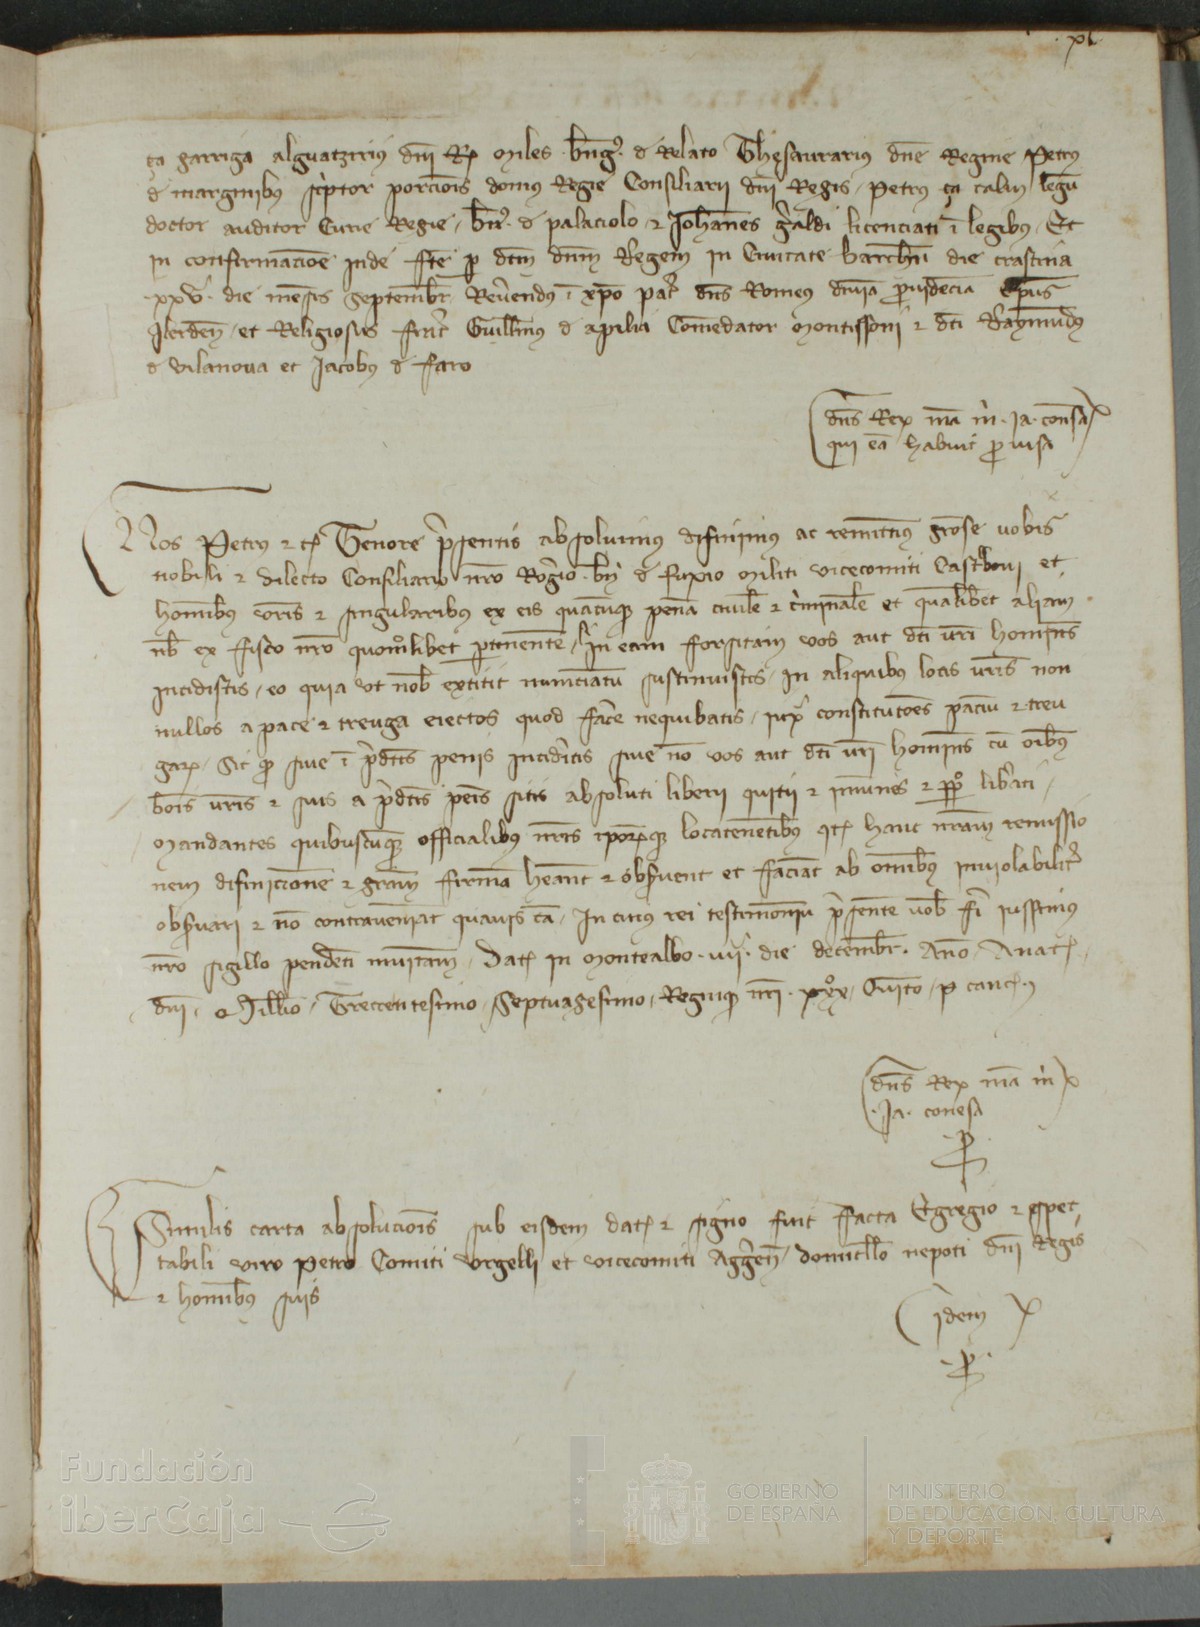 xl
ça garriga alguatzirius dni Rx miles. bng. d Relato Thesaurarius dne Regine Petrus
d marginibus sc'ptor porcionis domus Regie Consiliarii dni Regis, Petrus ça calm legu
doctor auditor Curie Regie, d palaciolo, ⁊ Johannes g'aldi licenciati ĩ legibus, Et
in confirmacioe inde fte p dcm dnm Regem in Civitate barchn die crastina
xxv. die mensis Septembr Reverendus ĩ xpo pat' dns Romeus divia pvidecia Epus
Ilerden, et Religiosus frat' Guillmus d apilia Comedator Montissoni ⁊ dci Raymundus
d vilanova et Jacobus d faro
dns Rex ma m. Ja. consa
qui ea habuit p visa
Nos Petrus ⁊ c Tenore p'sentis absolvimus difinimus ac remittimus gose vobis
nobili ⁊ dilecto Consiliario nro Rog'io bn d fuxio militi vicecomiti Castriboni et
hominibus vris ⁊ singularibus ex eis quacumq pena civile ⁊ c'iminale et qualibet aliam
nb ex fisco nro quomolibet ptinente, si in eam forsitam vos aut dci vri homines
incidistis, eo quia ut nob extitit nunciatu sustinuistis, in aliquibus locis vris non
nullos a pace ⁊ treuga eiectos quod face nequibatis, iux' constitucoes paciu ⁊ treu
garx, Sic q sive ĩ p'dctis penis incid'itis sive no vos aut dci vri homines cu oibus
bois vris ⁊ suis a p'dctis peis sitis absoluti liberii quitii ⁊ imunes ⁊ ppo lib'ati,
Mandantes quibuscumq officialibus nris ipoxq locatenetibus qt hanc nram remissio
nem difinicione ⁊ gram firma heant ⁊ observent et faciat ab omibus inviolabilit'
observari ⁊ no contraveniat quavis ca, In cuius rei testimoniu p'sente vob fi iussimus
nro sigillo pendeti munitam, Dat in Montealbo. vij. die decembr. Ano, Anat.
dni, Millio, Treccentesimo, Septuagesimo, Regniq nri. xxx, Quito, p canc.
dns Rex ma m
Ja. conesa
p
Similis carta absolucois sub eisdem dat ⁊ signo fuit facta Egregio ⁊ spec
tabili viro Petro Comiti Urgelli et vicecomiti Agg'en, domicllo nepoti dni Regis
⁊ hominibus suis
idem
p
Fundación
iberCaja
GOBIERNO
DE ESPAÑA
MINISTERIO
DE EDUCACIÓN, CULTURA
Y DEPORTE